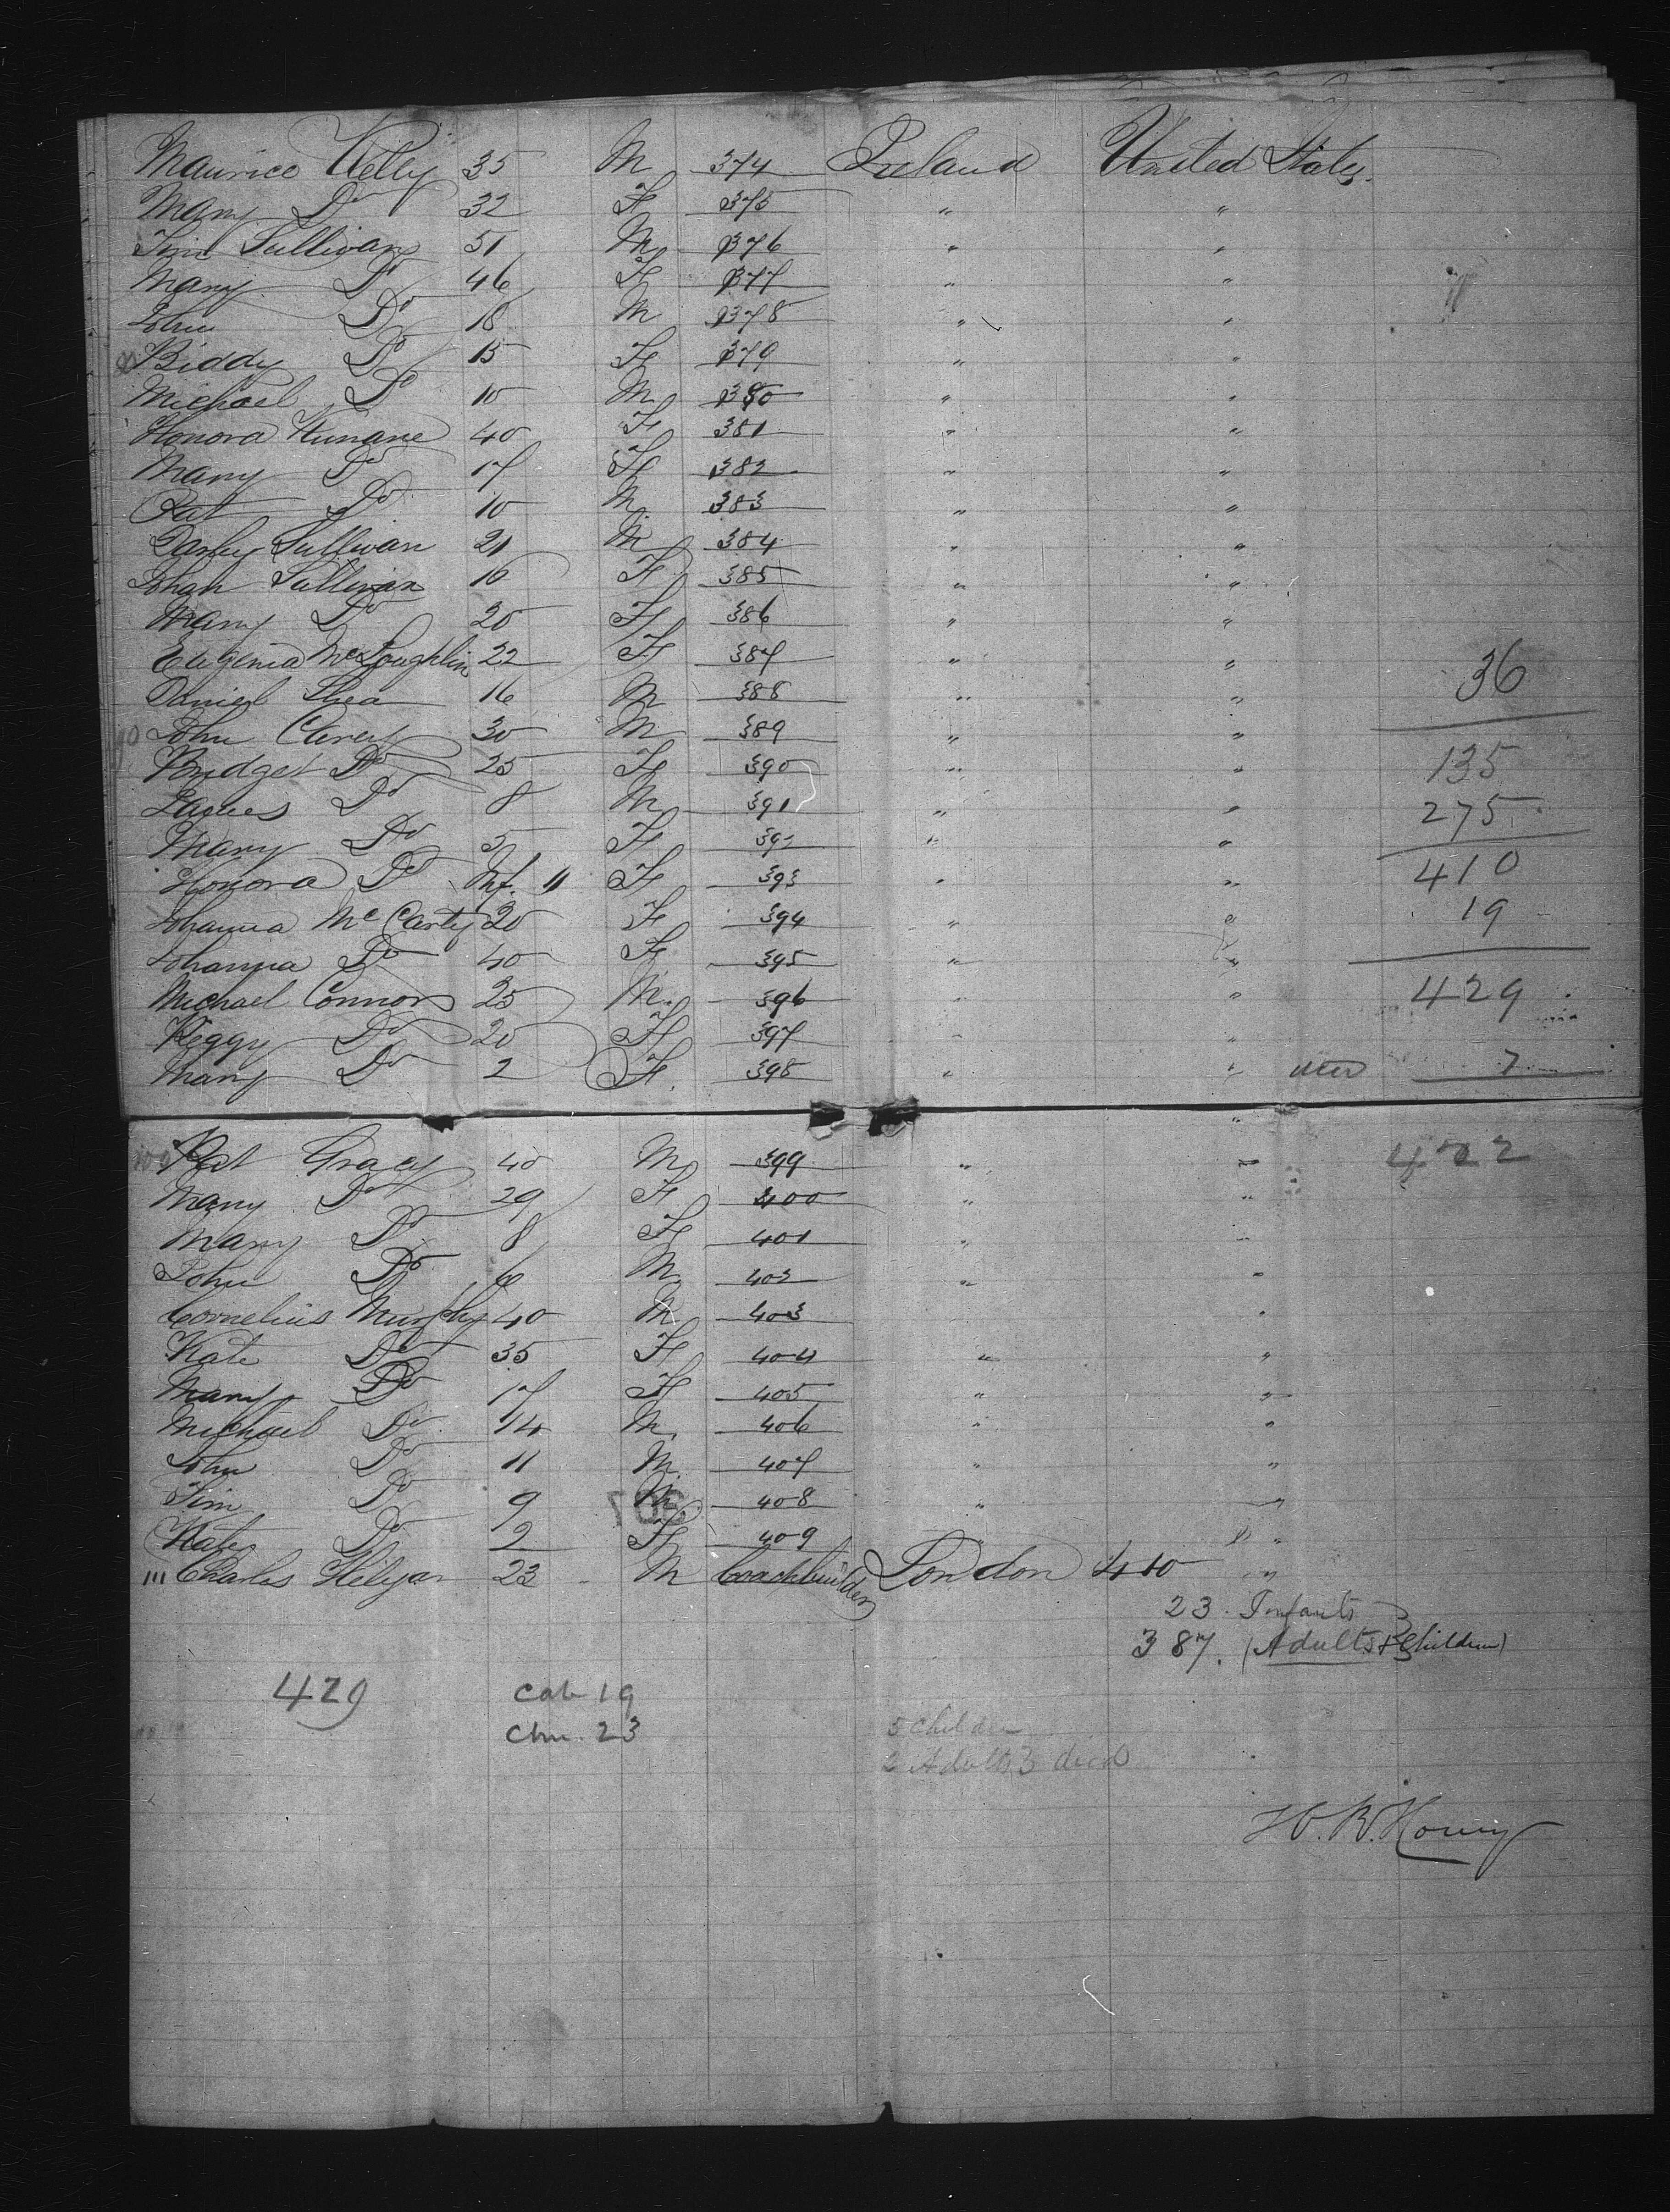 Maurice Kelly 35 M 374 Ireland United States.
Mary Do 32 F 375 " "
Tim Sullivan 51 M 376 " "
Mary Do 46 F 377 " "
John Do 18 M 378 " "
Biddy Do 15 F 379 " "
Michael Do 10 M 380 " "
Honora Kunane 40 F 381 " "
Mary Do 17 F 382 " "
Pat Do 10 M 383 " "
Darby Sullivan 21 M 384 " "
Johan Sullivan 16 F 385 " "
Mary Do 20 F 386 " "
Eugenia McLoughlin 22 F 387 " "
Daniel Shea 16 M 388 " " 36
John Carey 30 M 389 " "
Bridget Do 25 F 390 " " 135
James Do 8 M 391 " " 275
Mary Do 5 F 392 " "
Honora Do Inf. 11 F 393 " " 410
Johanna McCarty 20 F 394 " " 19
Johanna Do 40 F 395 " "
Michael Connors 25 M. 396 " " 429
Peggy Do 20 F 397 " "
Mary Do 2 F. 398 " " 7
Pat Gracy 40 M 399 " " 422
Mary Do 29 F 400 " "
Mary Do 8 F 401 " "
John Do 6 M 402 " "
Cornelius Murphy 40 M 403 "
Kate Do 35 F 404 " "
Mary Do 17 F 405 " "
Michael Do 14 M. 406 " "
John Do 11 M. 407 " "
Tim Do 9 M 408 " "
Kate Do 2 F 409 " "
111 Charles 23 M Coachbuilder London 410 "
23. Infants
387. (Adults & Children)
429 Cab 19
Chn. 23
5 Childen
2 Adults 3 died